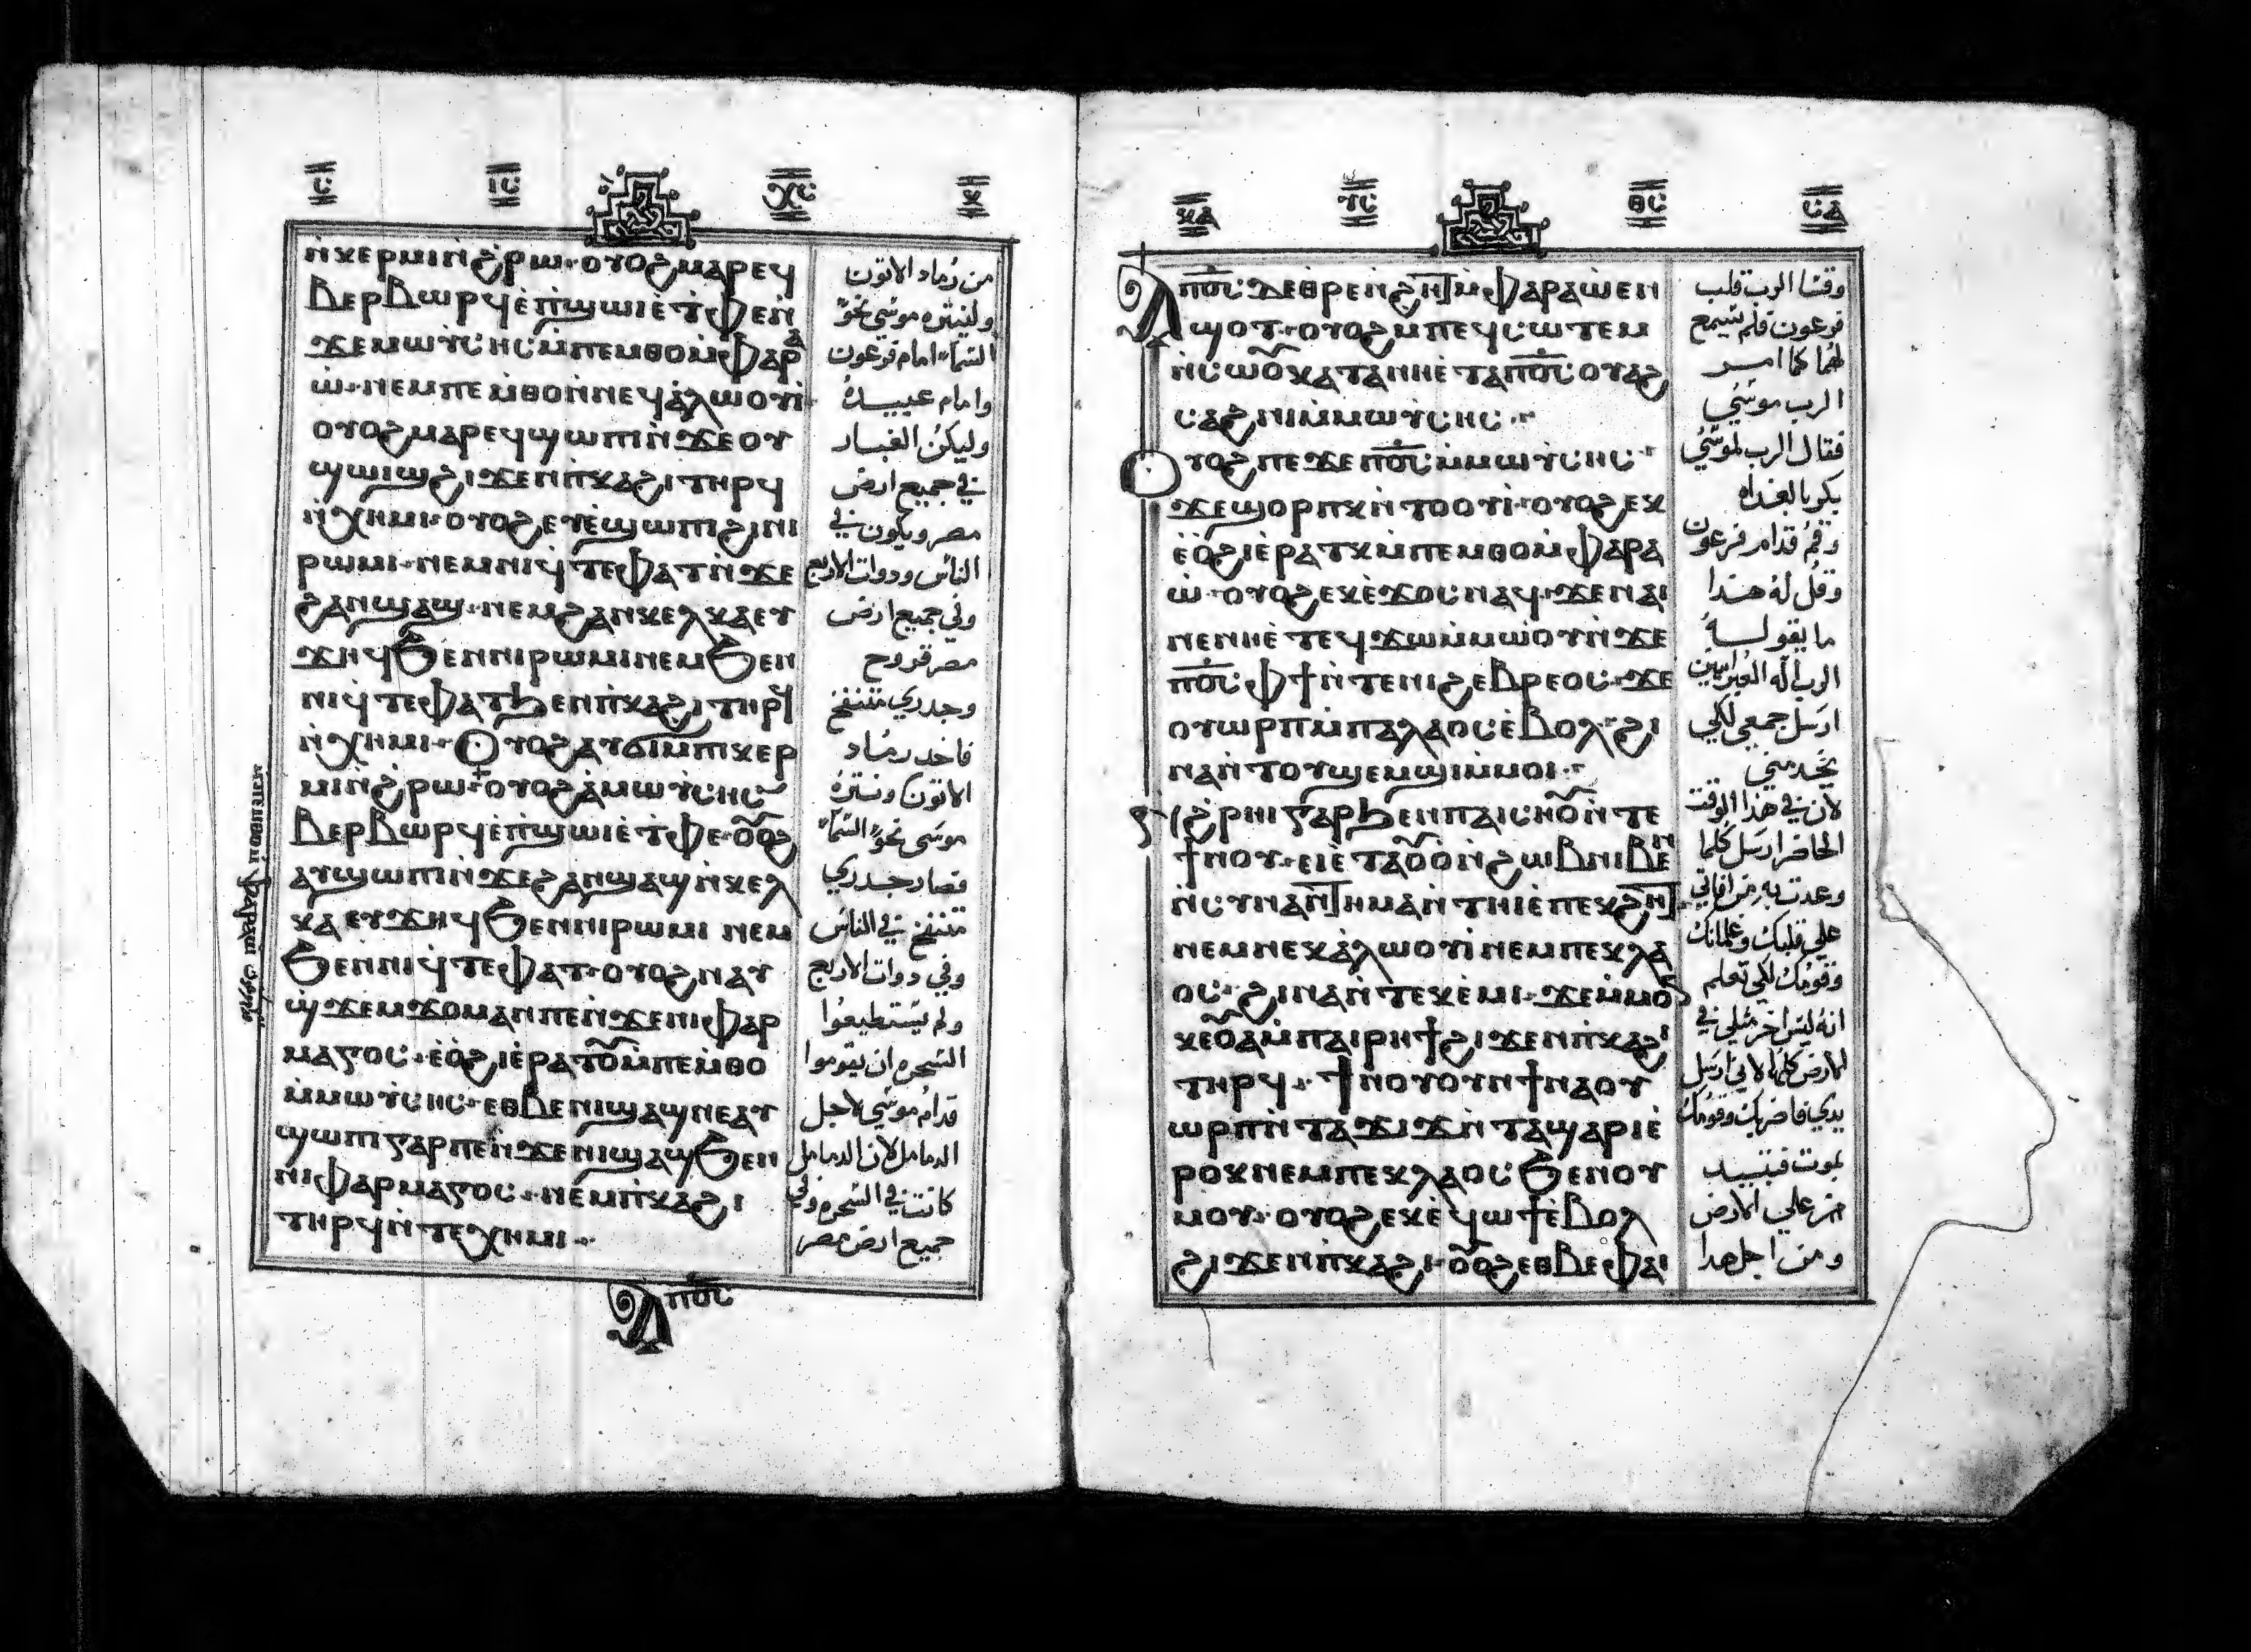 ⲓ̅ⲥ̅ ⲭ̅ⲥ̅ ⲕ
ⲛ̀ⲕⲉⲣⲙⲓ ⲛ̀ϩ̀ⲣⲱ· ⲟⲩⲟϩ ⲙⲁⲣⲉϥ
ⲃⲉⲣⲃⲱⲣϥ ⲉ̀ⲡ̀ϣⲱⲓ ⲉ̀ⲧ̀ⲫⲉ ⲛ̀
ϫⲉ ⲙⲱⲩ̀ⲥⲏⲥ ⲙ̀ⲡⲉⲙⲑⲟ ⲙ̀ⲫⲁⲣⲁ
ⲱ̀· ⲛⲉⲙ ⲡⲉⲙ̀ⲑⲟ ⲛ̀ⲛⲉϥⲁ̀ⲗⲱⲟⲩⲓ̀
ⲟⲩⲟϩ ⲙⲁⲣⲉϥϣⲱⲡⲓ ⲛ̀ϫⲉ ⲟⲩ
ϣⲱⲓϣ ϩⲓϫⲉⲛ ⲡ̀ⲕⲁϩⲓ ⲧⲏⲣϥ
ⲛ̀ⲭⲏⲙⲓ· ⲟⲩⲟϩ ⲉⲩⲉ̀ϣⲱⲡⲓ ϩⲓ ⲛⲓ
ⲣⲱⲙⲓ· ⲛⲉⲙ ⲛⲓϥ̀ⲧⲉⲫⲁⲧ ⲛ̀ϫⲉ
ϩⲁⲛϣⲁϣ· ⲛⲉⲙ ϩⲁⲛⲕⲉⲗⲕⲁ ⲉⲩ
ϫⲏϥ ϧⲉⲛ ⲛⲓⲣⲱⲙⲓ ⲛⲉⲙ ϧⲉⲛ
ⲛⲓϥ̀ⲧⲉⲫⲁⲧ ϧⲉⲛ ⲡ̀ⲕⲁϩⲓ ⲧⲏⲣϥ
ⲛ̀ⲭⲏⲙⲓ· ⲟⲩⲟϩ ⲁⲩϭⲓ ⲙ̀ⲡⲓⲕⲉⲣ
ⲙⲓ ⲛ̀ϩ̀ⲣⲱ· ⲟⲩⲟϩ ⲁ̀ ⲙⲱⲩ̀ⲥⲏⲥ
ⲃⲉⲣⲃⲱⲣϥ ⲉ̀ⲡ̀ϣⲱⲓ ⲉ̀ⲧ̀ⲫⲉ· ⲟⲟϩ
ⲁⲩϣⲱⲡⲓ ⲛ̀ϫⲉ ϩⲁⲛϣⲁϣ ⲛ̀ⲕⲉⲗ
ⲕⲁ ⲉⲩϫⲏϥ ϧⲉⲛ ⲛⲓⲣⲱⲙⲓ ⲛⲉⲙ
ϧⲉⲛ ⲛⲓϥ̀ⲧⲉⲫⲁⲧ· ⲟⲩⲟϩ ⲛⲁⲩ
ϣ̀ϫⲉⲙϫⲟⲙ ⲁⲛ ⲡⲉ ⲛ̀ϫⲉ ⲛⲓⲫⲁⲣ
ⲙⲁⲅⲟⲥ· ⲉ̀ⲟ̀ϩⲓ ⲉ̀ⲣⲁⲧⲟⲩ ⲙ̀ⲡⲉⲙ̀ⲑⲟ
ⲙ̀ⲙⲱⲩ̀ⲥⲏⲥ· ⲉⲑⲃⲉ ⲛⲓϣⲁϣ ⲛⲉⲁⲩ
ϣⲱⲡⲓ ⲅⲁⲣ ⲡⲉ ⲛ̀ϫⲉ ⲛⲓϣⲁϣ ϧⲉⲛ
ⲛⲓⲫⲁⲣⲙⲁⲅⲟⲥ· ⲛⲉⲙ ⲡ̀ⲕⲁϩⲓ
ⲧⲏⲣϥ ⲛ̀ⲧⲉ ⲭⲏⲙⲓ·
ⲁ̀ ⲡ̅ⲟ̅ⲥ̅
من رماد الاتون
ولينثره موسى نحو
السماء امام فرعون
وامام عبيده
وليكن الغبار
في جميع ارض
مصر ويكون في
الناس ودوات الاربع
وفي جميع ارض
مصر قروح
وجدري متنفخ
فاخد رماد
الاتون ونثره
موسى نحو السماء
فصار جدري
متنفخ في الناس
وفي دوات الاربع
ولم يستطيعوا
السحره ان يقوموا
قدام موسى لاجل
الدمامل لان الدمامل
كانت في السحره وفي
جميع ارض مصر
ⲕⲁ ⲩ̅ⲥ̅ ⲑ̅ⲥ̅
ⲁ̀ ⲡ̅ⲟ̅ⲥ̅ ⲇⲉ ⲑⲣⲉ ⲛ̀ϩⲏⲧ ⲙ̀ⲫⲁⲣⲁⲱ̀ ⲉⲛ
ϣⲟⲧ· ⲟⲩⲟϩ ⲙⲡⲉϥⲥⲱⲧⲉⲙ
ⲛ̀ⲥⲱⲟⲩ ⲕⲁⲧⲁ ⲫⲏ ⲉ̀ⲧⲁ ⲡ̅ⲟ̅ⲥ̅ ⲟⲩⲁϩ
ⲥⲁϩⲛⲓ ⲙ̀ⲙⲱⲩ̀ⲥⲏⲥ·
ⲟⲩⲟϩ ⲡⲉϫⲉ ⲡ̅ⲟ̅ⲥ̅ ⲙ̀ⲙⲱⲩ̀ⲥⲏⲥ
ϫⲉ ϣⲟⲣⲡⲕ ⲛ̀ⲧⲟⲟⲩⲓ̀· ⲟⲩⲟϩ ⲉⲕ
ⲉ̀ⲟ̀ϩⲓ ⲉ̀ⲣⲁⲧⲕ ⲙ̀ⲡⲉⲙⲑⲟ ⲙ̀ⲫⲁⲣⲁ
ⲱ̀· ⲟⲩⲟϩ ⲉⲕⲉ̀ϫⲟⲥ ⲛⲁϥ· ϫⲉ ⲛⲁⲓ
ⲛⲉ ⲛⲏ ⲉ̀ⲧⲉϥϫⲱ ⲙ̀ⲙⲱⲟⲩ ⲛ̀ϫⲉ
ⲡ̅ⲟ̅ⲥ̅ ⲫϯ ⲛ̀ⲧⲉ ⲛⲓϩⲉⲃⲣⲉⲟⲥ· ϫⲉ
ⲟⲩⲱⲣⲡ ⲙ̀ⲡⲁⲗⲁⲟⲥ ⲉ̀ⲃⲟⲗ· ϩⲓ
ⲛⲁ ⲛ̀ⲧⲟⲩϣⲉⲙϣⲓ ⲙ̀ⲙⲟⲓ·
ϩ̀ⲣⲏⲓ ⲅⲁⲣ ϧⲉⲛ ⲡⲁⲓⲥⲏⲟⲩ ⲛ̀ⲧⲉ
ϯⲛⲟⲩ· ⲉⲓⲉ̀ⲧⲁⲟⲩⲟ ⲛ̀ϩⲱⲃ ⲛⲓⲃⲉⲛ
ⲛ̀ⲥⲩⲛⲁⲛⲧⲏⲙⲁ ⲛ̀ⲧⲏⲓ ⲉ̀ⲡⲉⲕϩⲏⲧ·
ⲛⲉⲙ ⲛⲉⲕⲁ̀ⲗⲱⲟⲩⲓ̀ ⲛⲉⲙ ⲡⲉⲕⲗⲁ
ⲟⲥ· ϩⲓⲛⲁ ⲛ̀ⲧⲉⲕⲉ̀ⲙⲓ· ϫⲉ ⲙ̀ⲙⲟⲛ
ⲕⲉⲟⲩⲁⲓ ⲙ̀ⲡⲁⲓⲣⲏϯ ϩⲓϫⲉⲛ ⲡ̀ⲕⲁϩⲓ
ⲧⲏⲣϥ· ϯⲛⲟⲩ ⲟⲩⲛ ϯⲛⲁⲟⲩ
ⲱⲣⲡ ⲛ̀ⲧⲁϫⲓϫ ⲛ̀ⲧⲁϣⲁⲣⲓ ⲉ̀
ⲣⲟⲕ ⲛⲉⲙ ⲡⲉⲕⲗⲁⲟⲥ ϧⲉⲛ ⲟⲩ
ⲙⲟⲩ· ⲟⲩⲟϩ ⲉⲕⲉ̀ϥⲱϯ ⲉ̀ⲃⲟⲗ
ϩⲓϫⲉⲛ ⲡ̀ⲕⲁϩⲓ· ⲟⲟϩ ⲉⲑⲃⲉ ⲫⲁⲓ
وقسا الرب قلب
فرعون فلم يسمع
لهما كما امر
الرب موسى
فقال الرب لموسى
بكر بالغداه
وقم قدام فرعون
وقل له هذا
ما يقوله
الرب اله العبرانيين
ارسل جمعي لكي
يخدمني
لان في هذا الوقت
الحاضر ارسل كلما
على قلبك وغلمانك
وقومك لكي تعلم
انه ليس اخر مثلي في
الارض كلها لاني ارسل
يدي فاضربك وقومك
بموت فتبيد
من على الارض
ومن اجل هدا